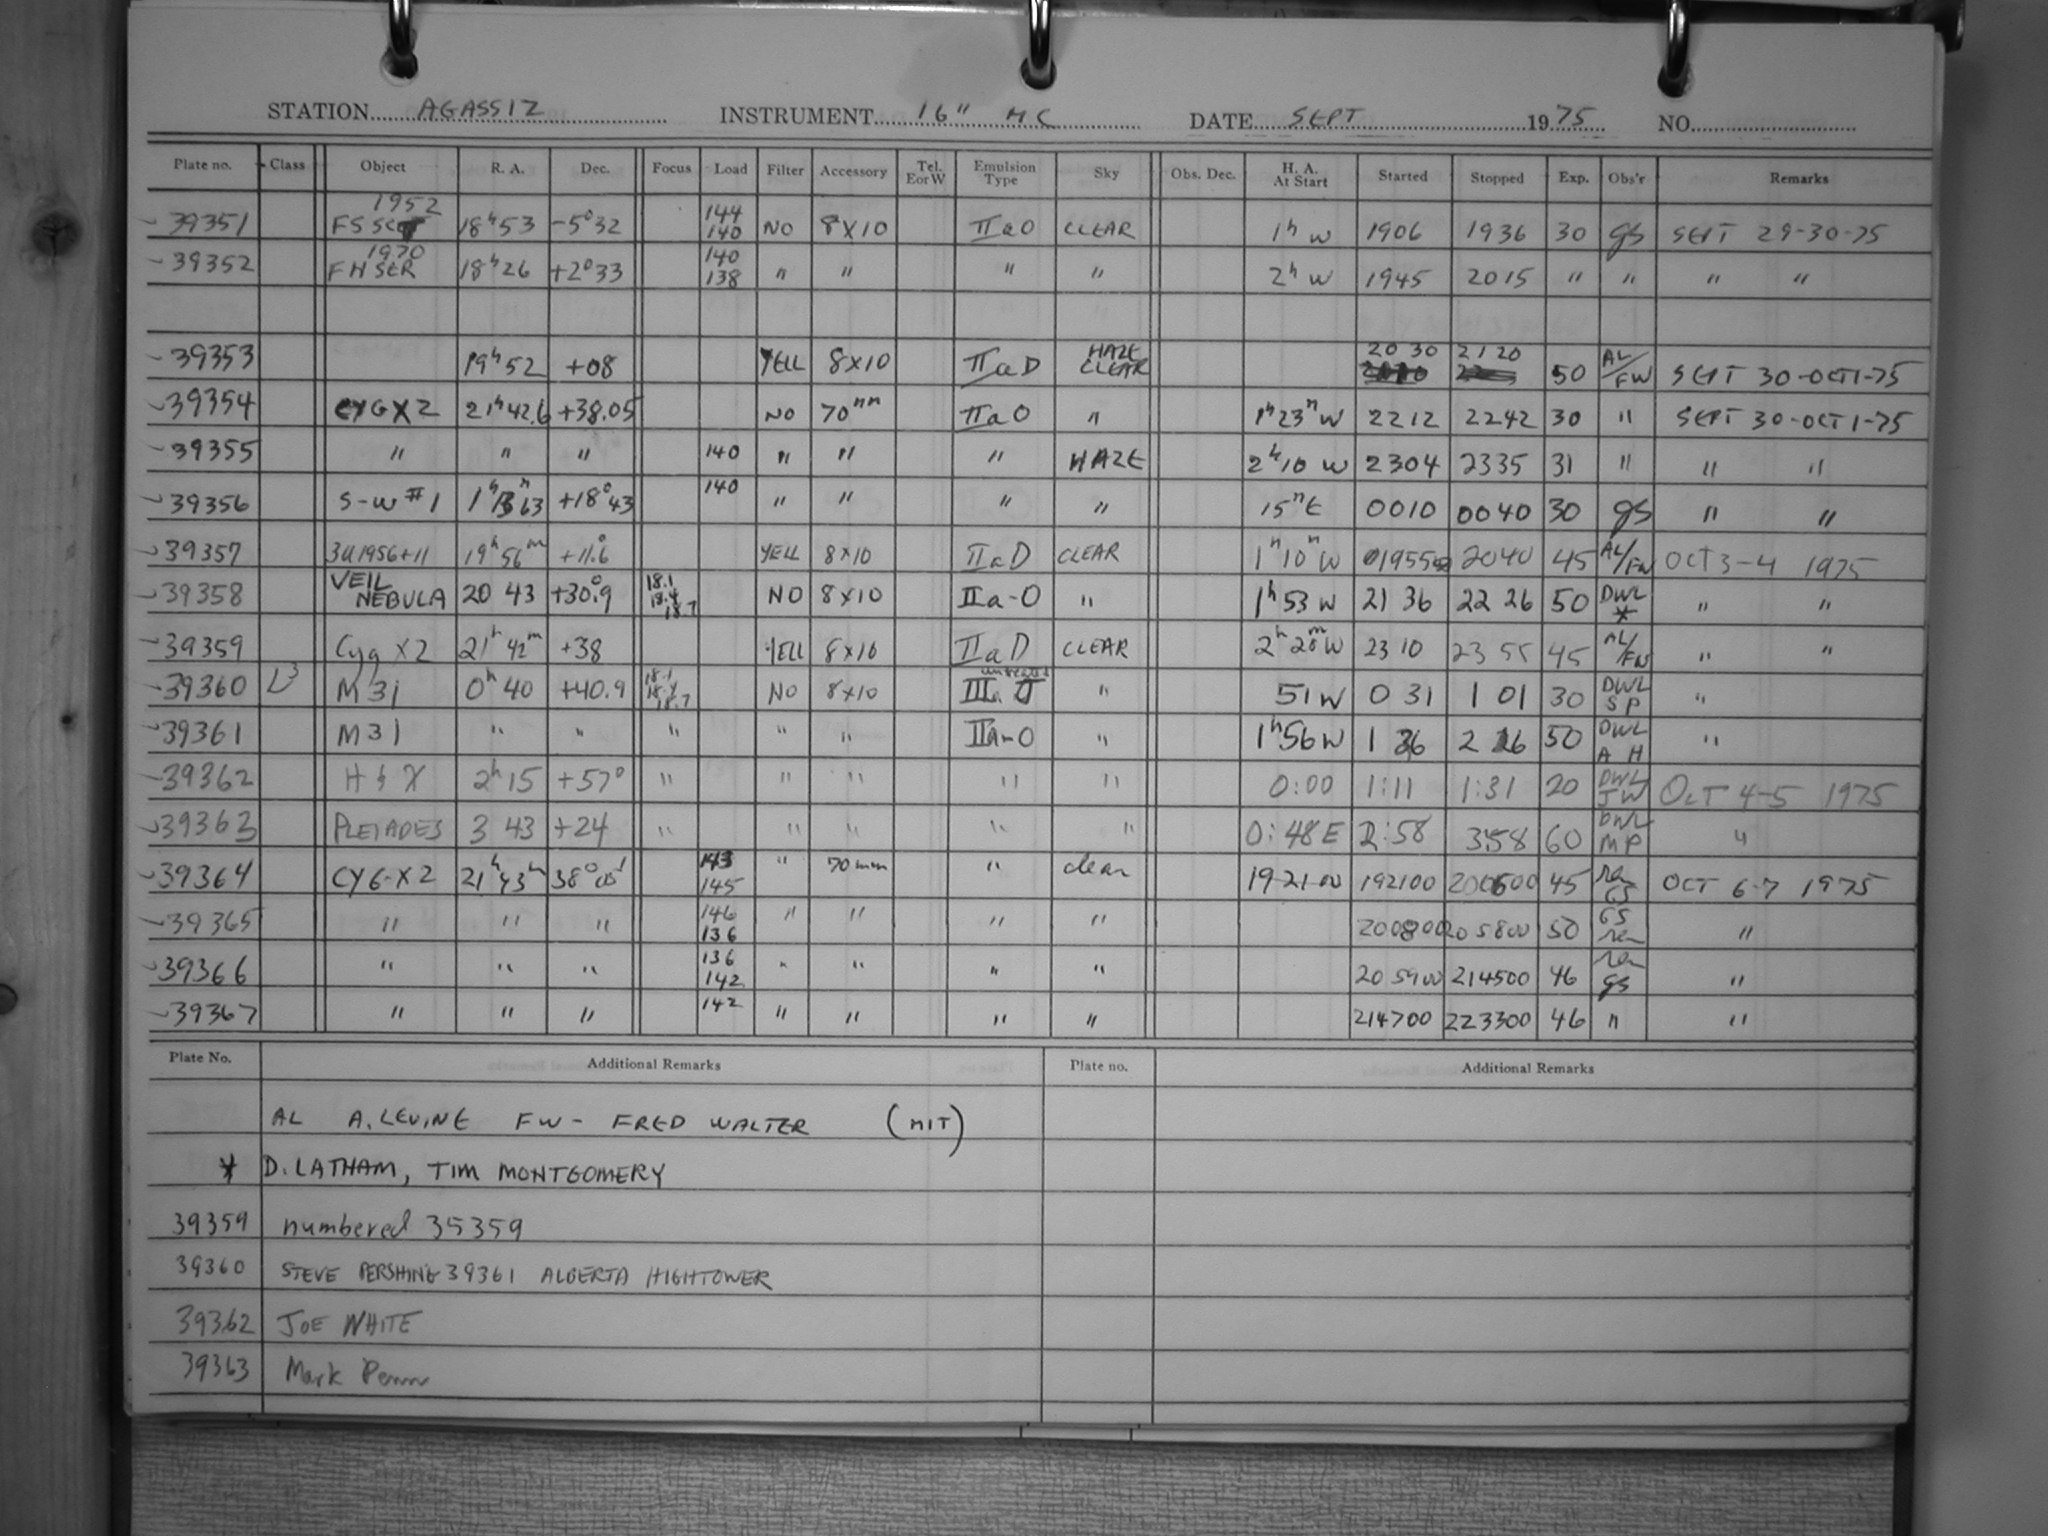 STATION AGASSIZ INSTRUMENT 16" MC DATE SEPT 1975 NO.
Plate no. Class Object R. A. Dec. Focus Load Filter Accessory Tel. E or W Emulsion Type Sky Obs. Dec. H. A. At Start Started Stopped Exp. Obs'r Remarks
39351 FS SCT 1952 18h53 -5°32 144 140 NO 8X10 IIaO CLEAR 1h W 1906 1936 30 gs SEPT 29-30-75
39352 FH SER 1970 18h26 +2°33 140 138 " " " " 2h W 1945 2015 " " " "
39353 19h52 +08 YELL 8X10 IIaD HAZE CLEAR 20 30 21 20 50 AL/FW SEPT 30-OCT 1-75
39354 CYG X2 21h42.6 +38.05 NO 70mm IIaO " 1h23m W 2212 2242 30 " SEPT 30-OCT 1-75
39355 " " " 140 " " " HAZE 2h10 W 2304 2335 31 " " "
39356 S-W #1 +18°43 140 " " " " 15m E 0010 0040 30 gs " "
39357 3U1956+11 19h56m +11.6° YELL 8X10 IIaD CLEAR 1h10m W 1955 2040 45 AL/FW OCT 3-4 1975
39358 VEIL NEBULA 20 43 +30.9° 18.1 18.4 18.7 NO 8X10 IIa-O " 1h53 W 21 36 22 26 50 DWL * " "
39359 Cyg X2 21h42m +38 YELL 8X10 IIaD CLEAR 2h20m W 23 10 23 55 45 AL/FW " "
39360 M31 0h40 +40.9 18.1 18.4 18.7 NO 8X10 IIIa J " 51 W 0 31 1 01 30 DWL SP "
39361 M31 " " " " " IIa-O " 1h56 W 1 36 2 26 50 DWL AH "
39362 H & X 2h15 +57° " " " " " 0:00 1:11 1:31 20 DWL JW OCT 4-5 1975
39363 PLEIADES 3 43 +24 " " " " " 0:48 E 2:58 3:58 60 DWL MP "
39364 CYG-X2 21h43m 38°05' 143 145 " 70mm " clear 19-21-00 192100 200600 45 OCT 6-7 1975
39365 " " " 146 136 " " " " 200800 205800 50 GS "
39366 " " " 136 142 " " " " 205900 214500 46 gs "
39367 " " " 142 " " " " 214700 223300 46 " "
Plate No. Additional Remarks Plate no. Additional Remarks
AL A. LEVINE FW- FRED WALTER (MIT)
* D. LATHAM, TIM MONTGOMERY
39359 numbered 35359
39360 STEVE PERSHING 39361 ALBERTA HIGHTOWER
39362 JOE WHITE
39363 Mark Penn